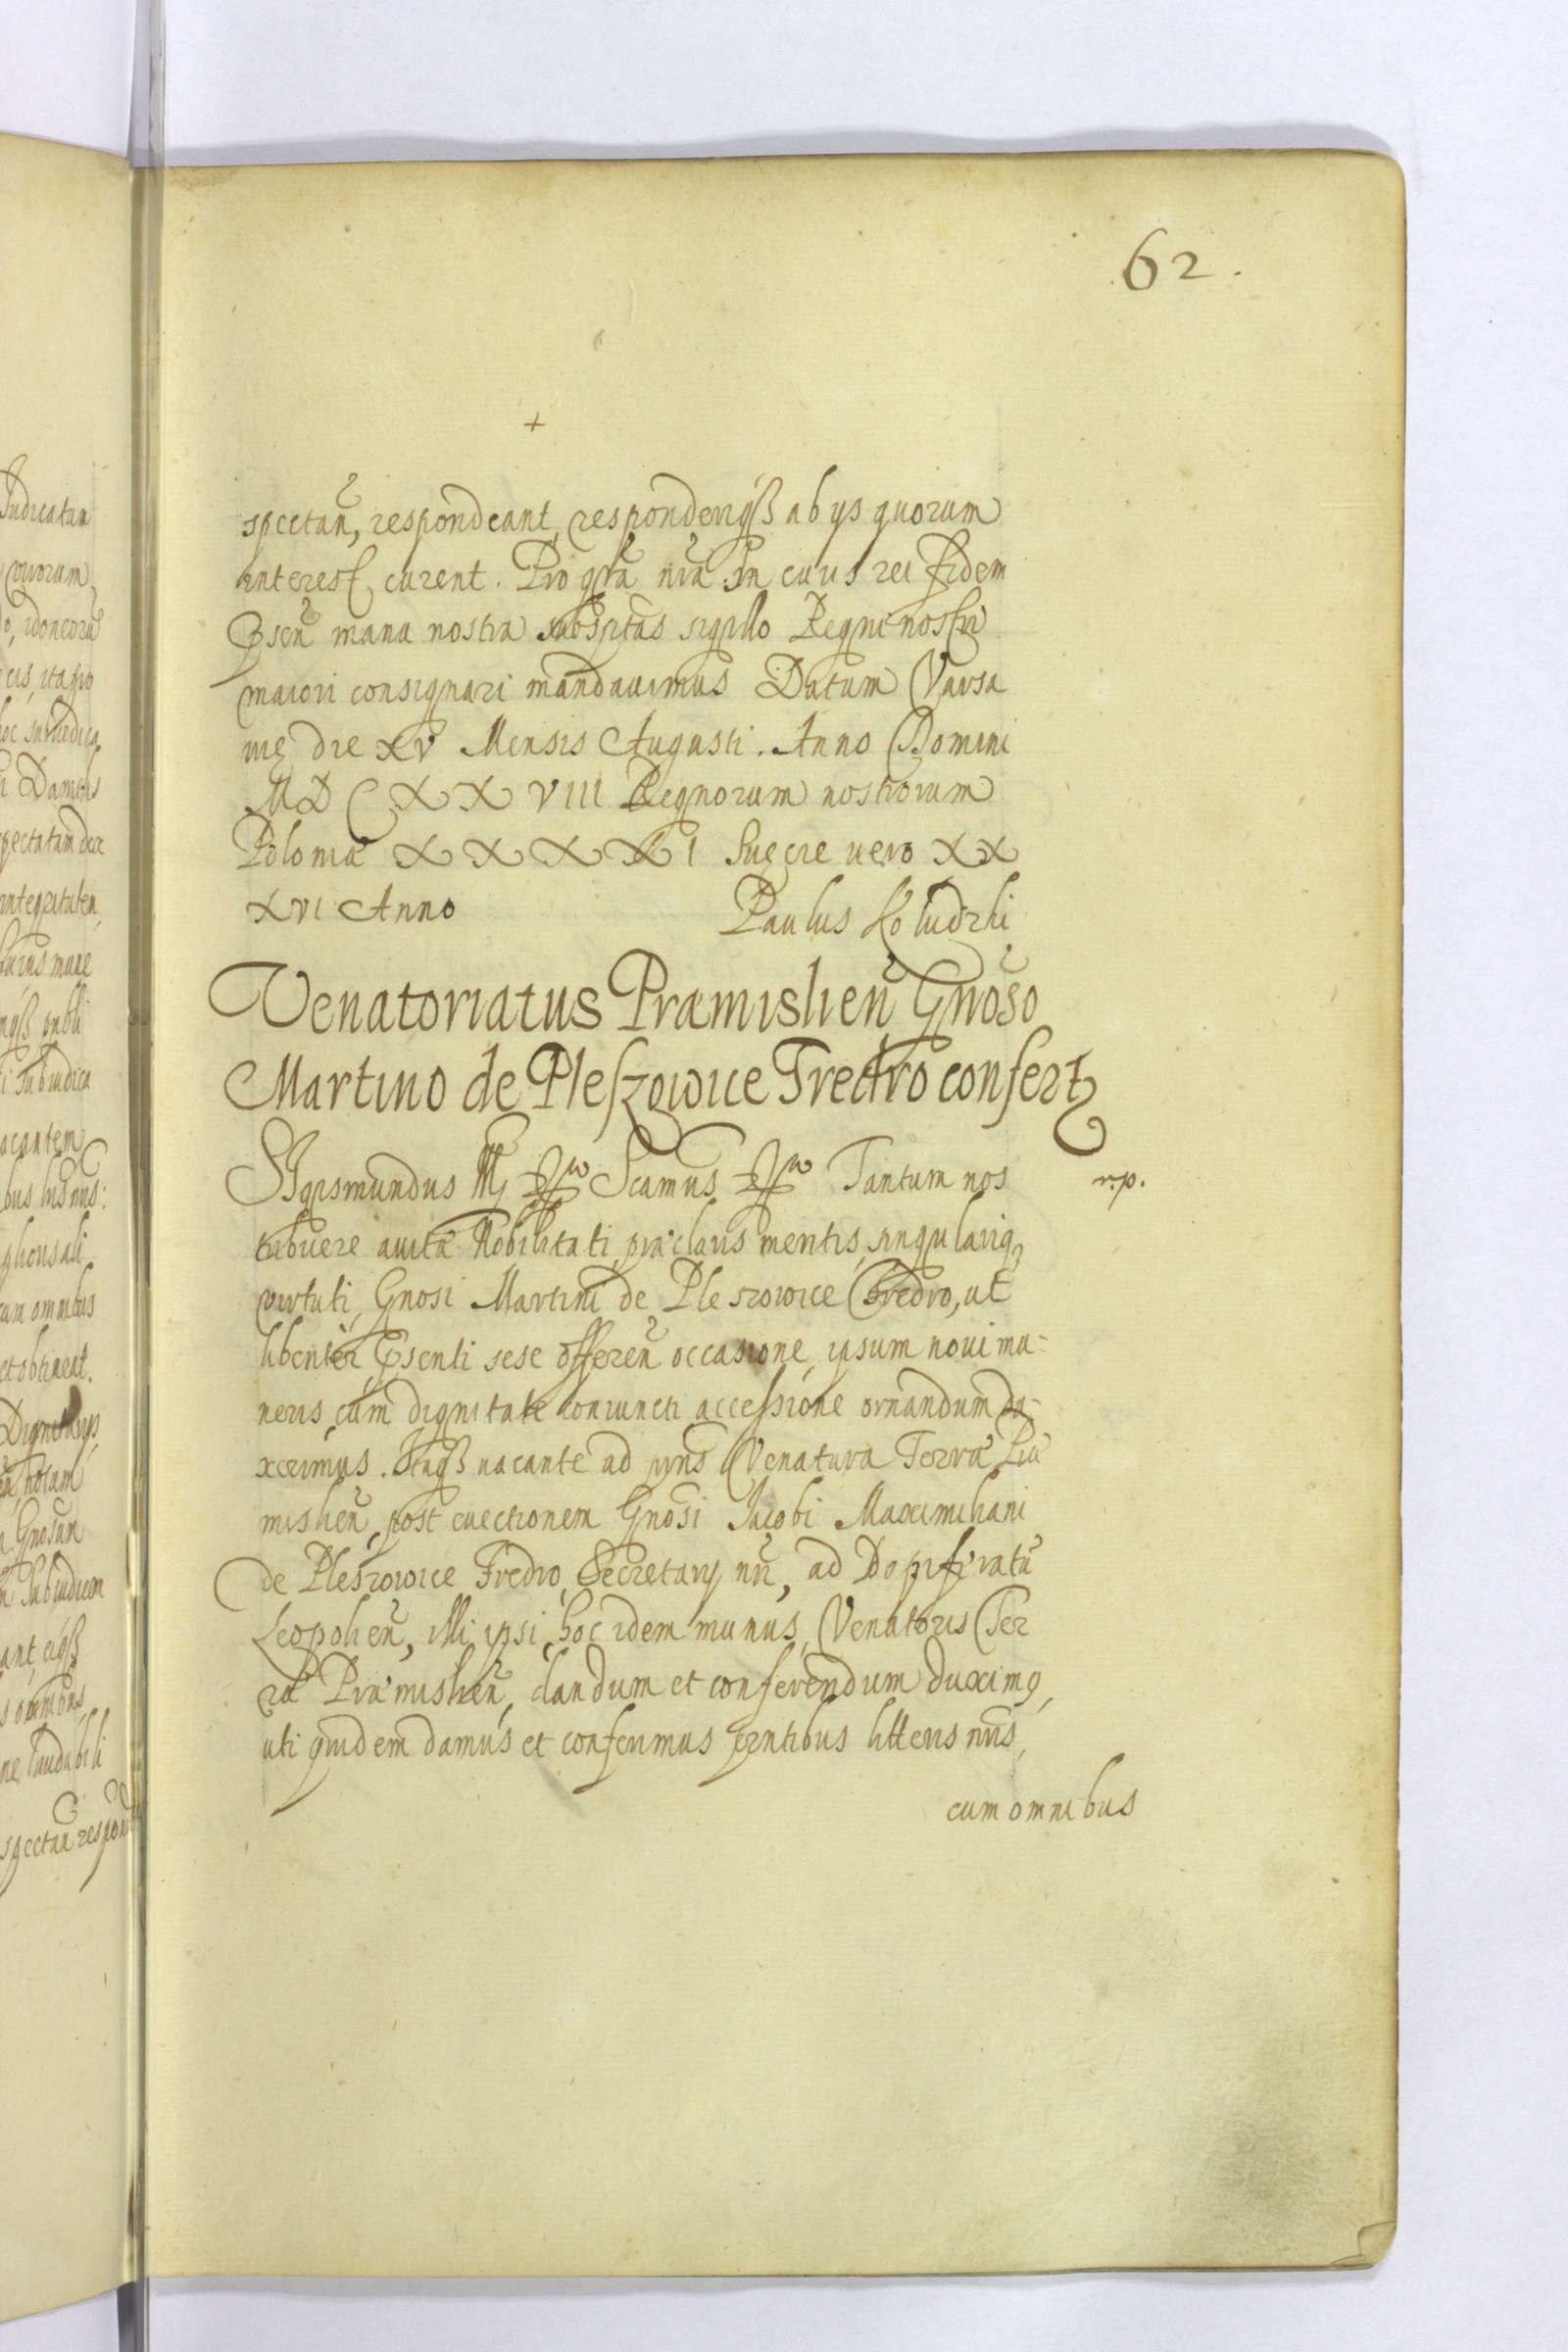 62.
+
spectañ, respondeant, responderiqß ab ijs quorum
interest, curent. Pro gr̃a nr̃a. In cuius rei fidem
pñseñ manu nostra subscriptas sigillo Regni nostri
maiori consignari mandauimus Datum Varsa
uię die XV Mensis Augusti. Anno Domini
MDCXXVIII Regnorum nostrorum
Poloniæ XXXXI Sueciæ uero XX
XVI Anno Paulus Koludzki
Venatoriatus Præmislieñ Gñoso
Martino de Pleszowice Fredro confertᷣ
Sigismundus Scimus Tantum nos r.p.
tribuere auitæ Nobilitati præclaris meritis, singulariq,
virtuti Gnosi Martini de Pleszowice Fredro, ut
libenter pñsenti sese offereñ occasione, ipsum noui mu-
neris cum dignitate coniuncti accessione ornandum du-
xerimus. Itaqß uacante ad pñs Venatura Terræ Præ
mislieñ, post euectionem Gñosi Jacobi Maximiliani
de Pleszowice Fredro Secretarij nr̃i, ad Dapiferatũ
Leopolieñ, illi ipsi hoc idem munus Venatoris Ter
ræ Præmislieñ, dandum et conferendum duximꝰ,
uti quidem damus et conferimus pr̃ntibus litteris nr̃is,
cum omnibus
Judicatum
quorum
idoneorũ
spectatam
integritatem
vacantem
cum omnibus
et obtineat.
Gnosum
omnibus
laudabili
spectañ respond